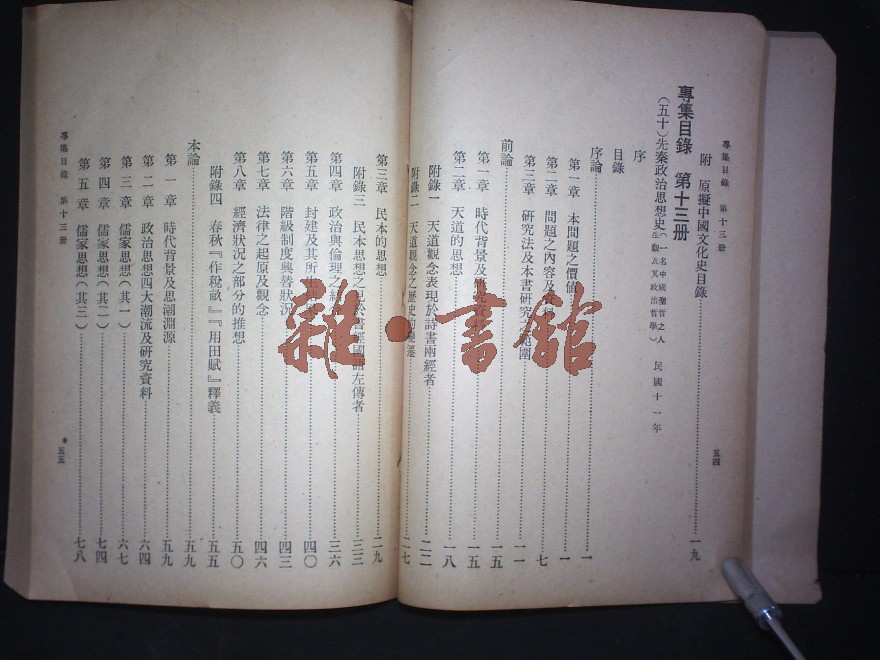 專集目錄 第十三册
五四
附 原擬中國文化史目錄 一九
專集目錄 第十三册
(五十)先秦政治思想史(一名中國聖哲之人生觀及其政治哲學) 民國十一年
序
目錄
序論 一
第一章 本問題之價值 一
第二章 問題之內容及資料 七
第三章 研究法及本書研究之範圍 一一
前論 一五
第一章 時代背景及研究資料 一五
第二章 天道的思想 一八
附錄一 天道觀念表現於詩書兩經者 二二
附錄二 天道觀念之歷史的變遷 二七
第三章 民本的思想 二九
附錄三 民本思想之見於書經國語左傳者 三三
第四章 政治與倫理之結 三六
第五章 封建及其所生 四〇
第六章 階級制度興替狀況 四三
第七章 法律之起原及觀念 四六
第八章 經濟狀況之部分的推想 五〇
附錄四 春秋『作稅畝』『用田賦』釋義 五五
本論 五九
第一章 時代背景及思潮淵源 五九
第二章 政治思想四大潮流及研究資料 六四
第三章 儒家思想(其一) 六七
第四章 儒家思想(其二) 七四
第五章 儒家思想(其三) 七八
專集目錄 第十三册
五五
雜·書館